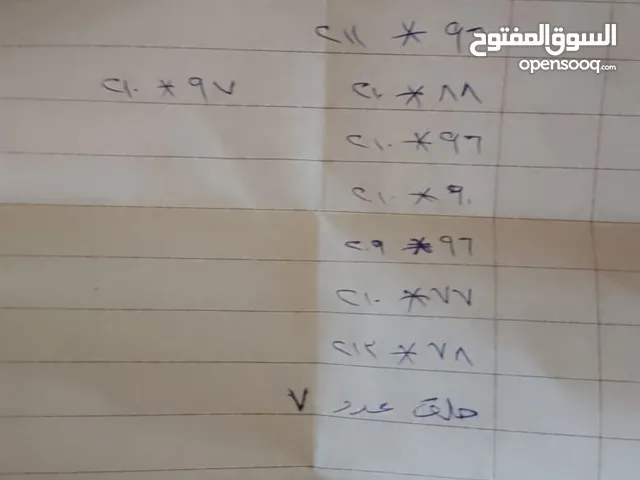 السوق المفتوح
opensooq.com
٩٦ * ٢١١
٨٨ * ٢١٠ ٩٧ * ٢١٠
٩٦ * ٢١٠
٩٠ * ٢١٠
٩٦ * ٢٠٩
٧٧ * ٢١٠
٧٨ * ٢١٢
حلق عدد ٧